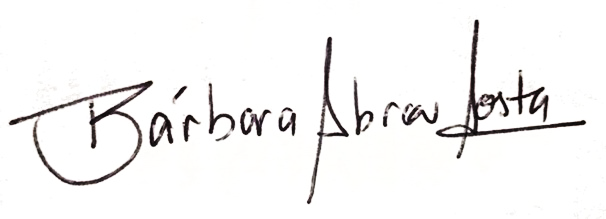 Bárbara Abreu Acosta